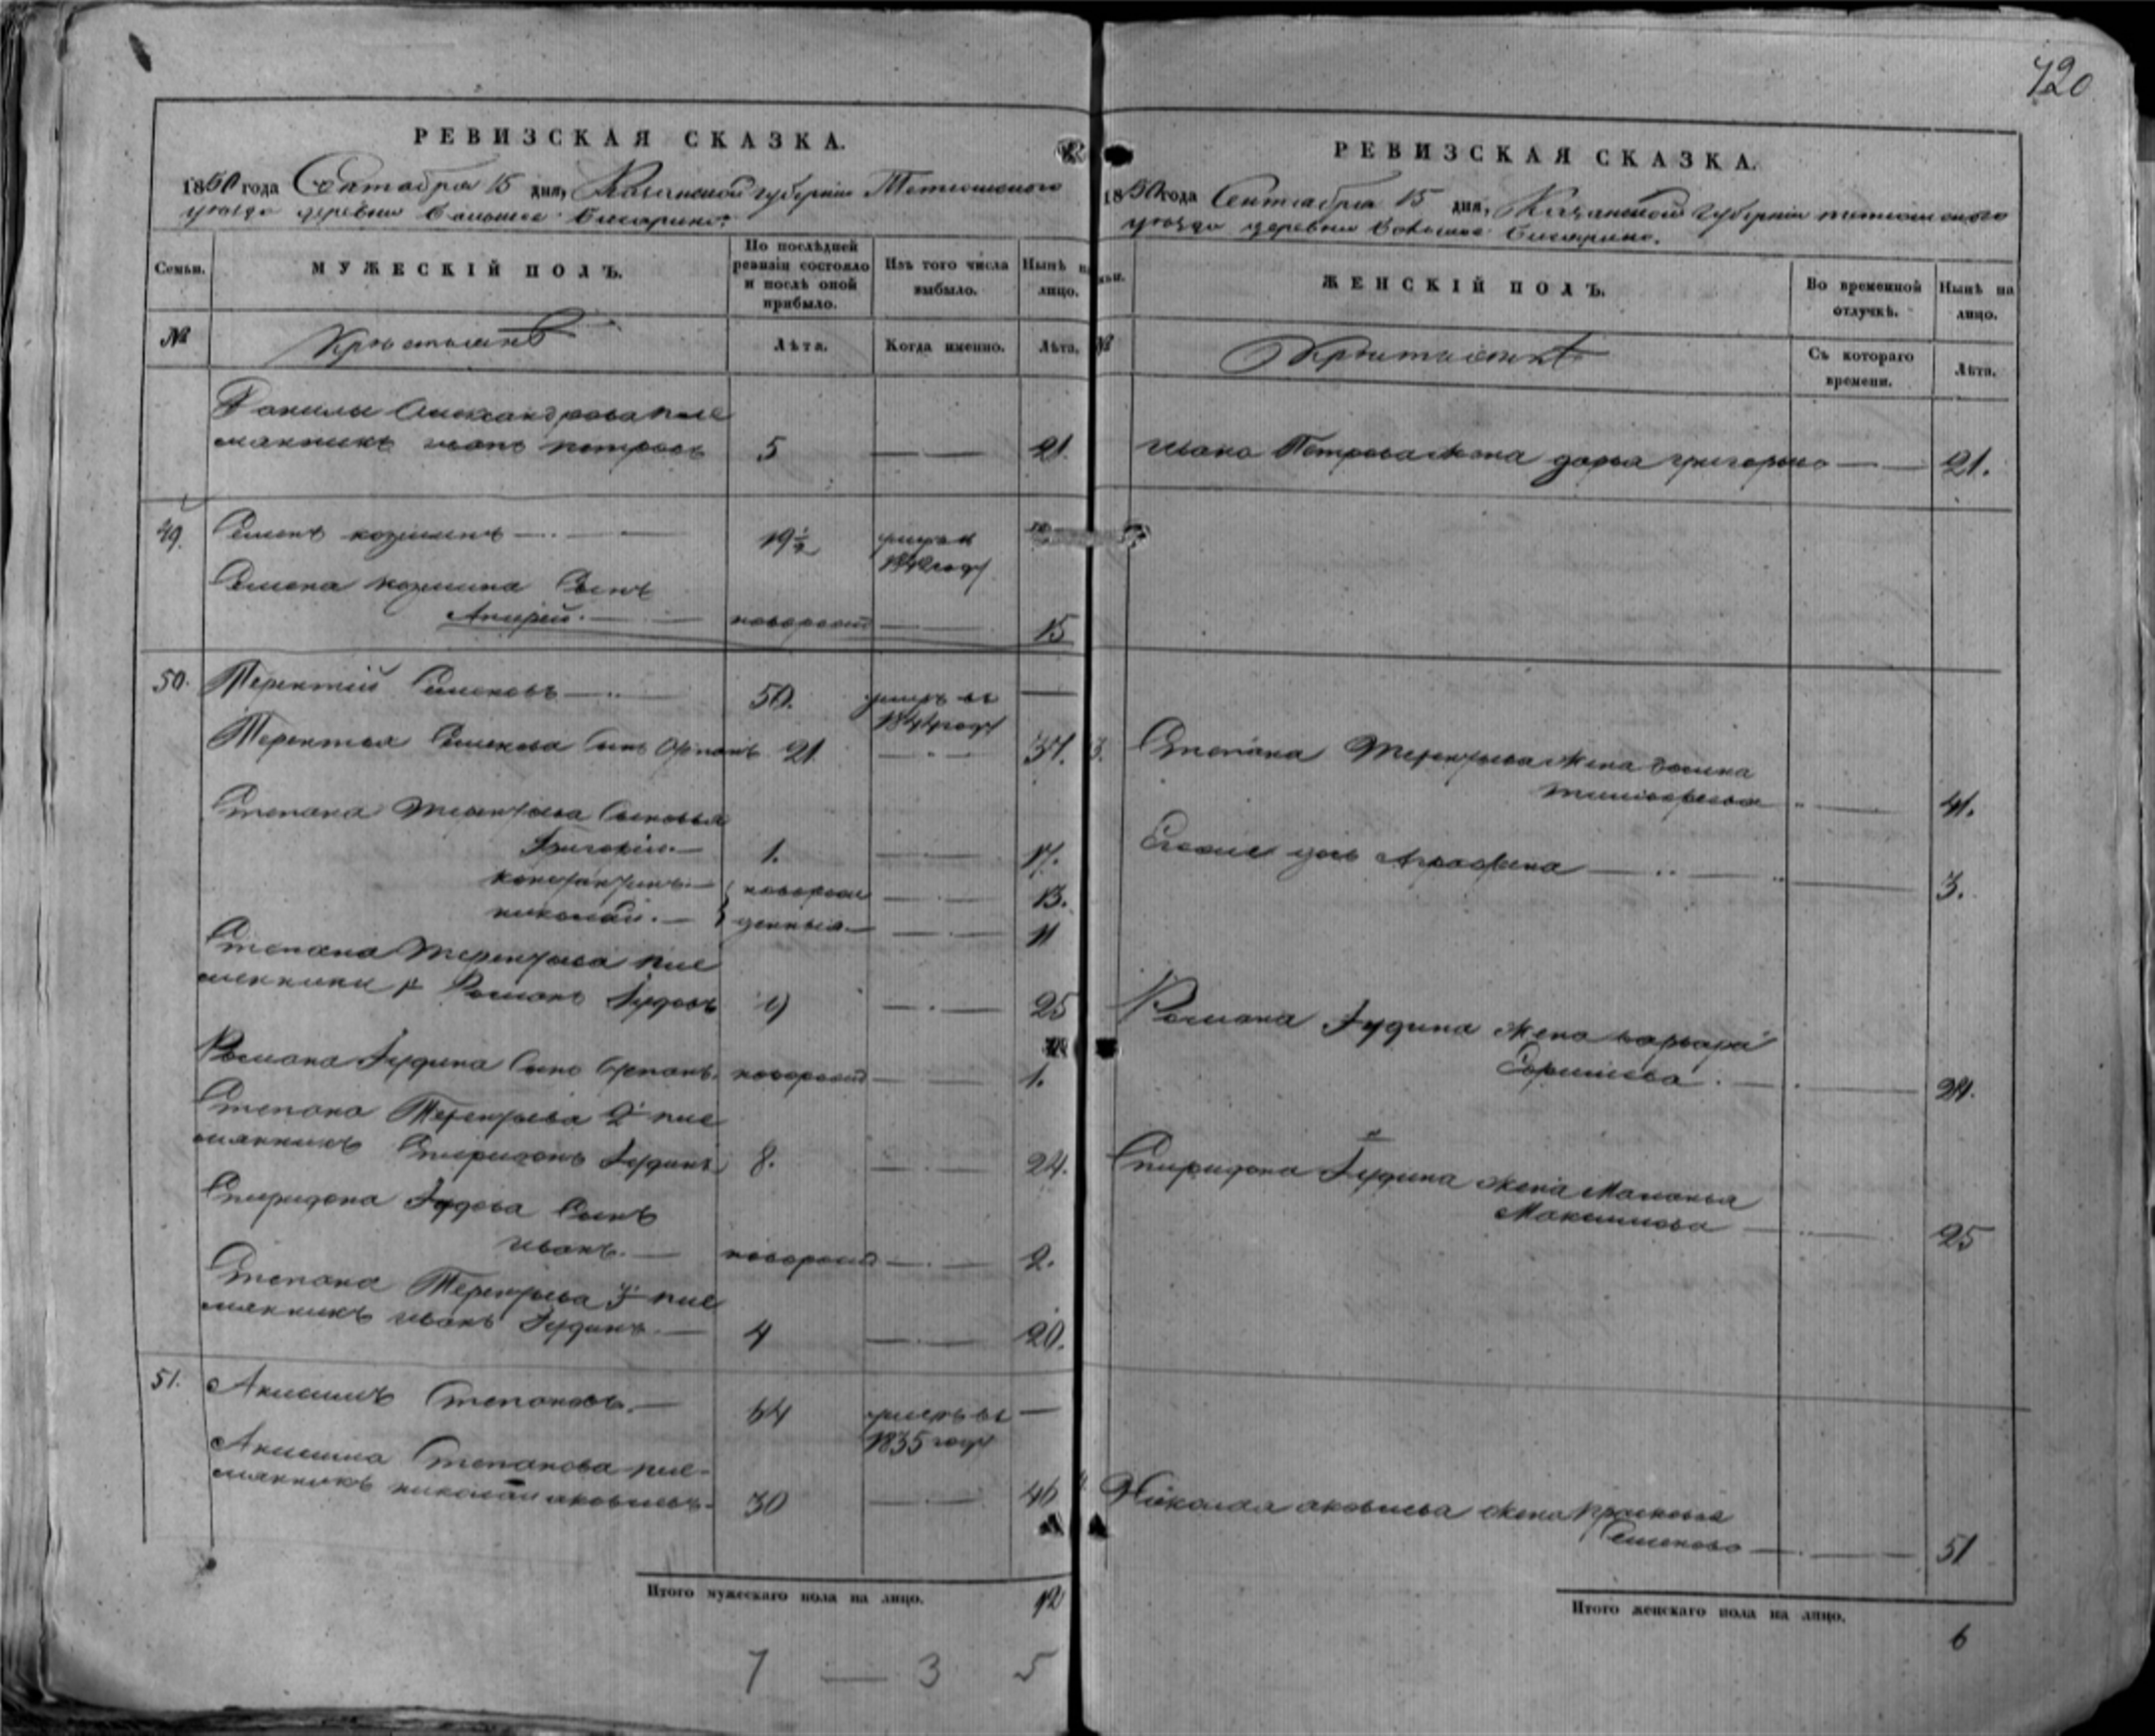 420
РЕВИЗСКАЯ СКАЗКА.
1850 года Сентября 15 дня, Казанской губернии Тетюшского
уезда деревни Большое
Семьи.
МУЖЕСКІЙ ПОЛЪ.
По послѣдней ревизіи состояло и послѣ оной прибыло.
Изъ того числа выбыло.
Нынѣ на лицо.
№
Лѣта.
Когда именно.
Лѣта.
Данилы Александрова пле
мянникъ иванъ петровъ 5 21
49. Семенъ козминъ 19½ умре въ
1842 году
Семена козмина Сынъ
Андрей. новорожд 15
50. Терентий Семеновъ 50. умеръ въ
1844 году
Терентья Семенова Сынъ Степанъ 21 37.
Степана Терентьева Сыновья
Григорий. 1. 17.
константинъ новорож 13.
николай. денныя 11
Степана Терентьева пле
мянники 1 Романъ Іудовъ 9 25
Романа Іудина Сынъ Степанъ. новорожд 1.
Степана Терентьева 2й пле
мянникъ Спиридонъ Іудинъ 8. 24.
Спиридона Іудова Сынъ
иванъ. новорожд 2.
Степана Терентьева 3й пле
мянникъ иванъ Іудинъ. 4 20.
51. Анисимъ Степановъ. 64 умеръ въ
1835 году
Анисима Степанова пле-
мянникъ николай яковлевъ. 30 46
Итого мужескаго пола на лицо. 12
7 — 3 5
РЕВИЗСКАЯ СКАЗКА.
1850 года Сентября 15 дня, Казанской губернии тетюшского
уезда деревни Большое
ЖЕНСКІЙ ПОЛЪ.
Во временной отлучкѣ.
Нынѣ на лицо.
№
Съ котораго времени.
Лѣта.
ивана Петрова жена дарья григорьева 21.
Степана Терентьева жена
тимофеева 41.
Степана дочь Аграфена 3.
Романа Іудина жена варвара
24.
Спиридона Іудина жена Маланья
Максимова 25
Николая яковлева жена Прасковья
Семенова 51
Итого женскаго пола на лицо.
6